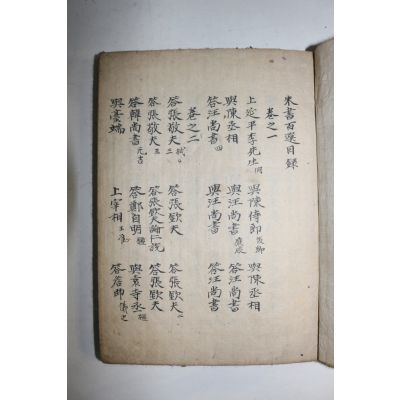 朱書百選目録
卷之一
上延平李先生侗 與陳侍郎俊卿 與陳丞相
與陳丞相 與汪尚書應辰 答汪尚書
答汪尚書四 與汪尚書 答汪尚書
卷之二
答張敬夫栻 答張欽夫 答張欽夫二
答張敬夫三 答張欽夫論仁說 答張欽夫
答韓尚書元吉 答鄭自明 與袁寺丞樞
與臺端 上宰相王淮 答詹帥儀之